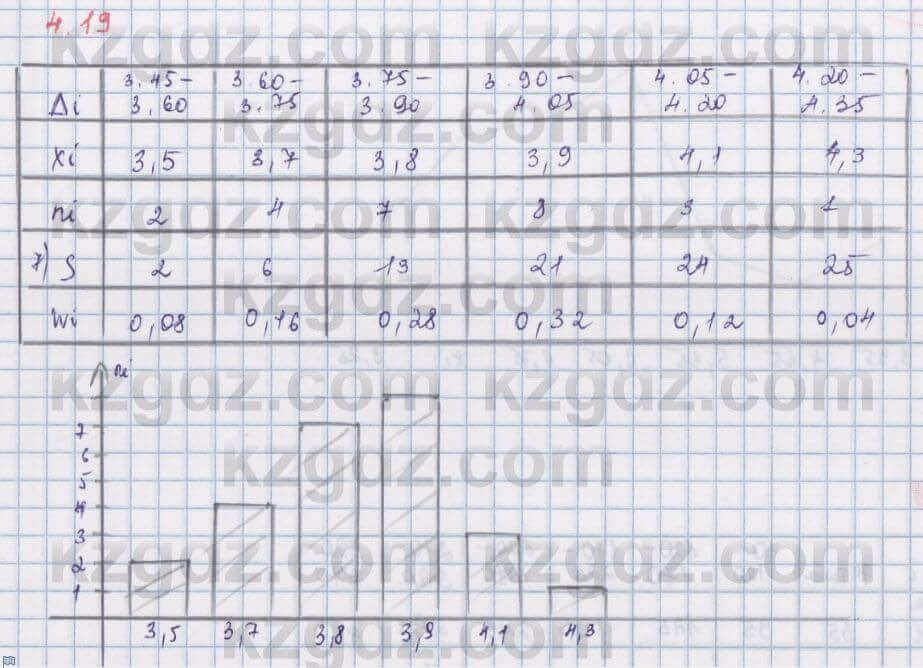 4.19
Δi 3.45–3.60 3.60–3.75 3.75–3.90 3.90–4.05 4.05–4.20 4.20–4.35
xi 3,5 3,7 3,8 3,9 4,1 4,3
ni 2 4 7 8 3 1
S 2 6 13 21 24 25
Wi 0,08 0,16 0,28 0,32 0,12 0,04
ni
7
6
5
4
3
2
1
3,5 3,7 3,8 3,9 4,1 4,3
kzgdz.com kzgdz.com
kzgdz.com
kzgdz.com kzgdz.com
kzgdz.com
kzgdz.com kzgdz.com
kzgdz.com
kzgdz.com kzgdz.com
kzgdz.com